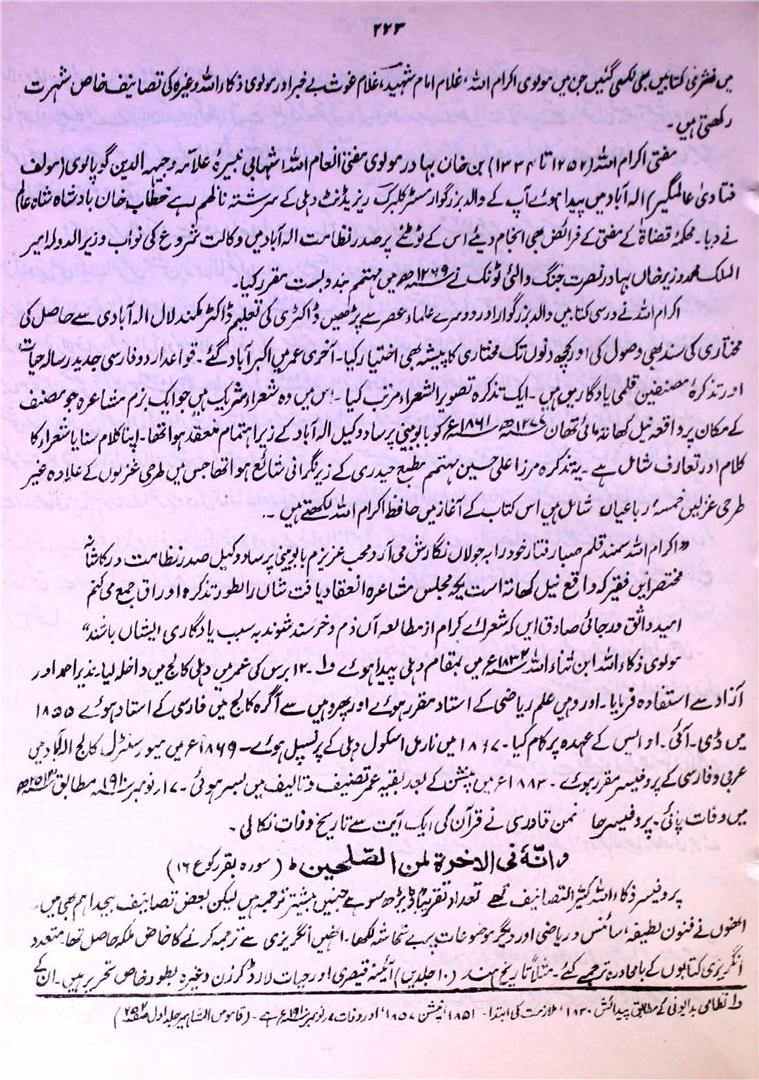 ۲۲۳
میں نثری کتابیں بھی لکھی گئیں جن میں مولوی اکرام اللہ، غلام امام شہید، غلام غوث بے خبر اور مولوی ذکاء اللہ وغیرہ کی تصانیف خاص شہرت
رکھتی ہیں۔
مفتی اکرام اللہ (۱۲۵۲ تا ۱۳۳۴) بن خان بہادر مولوی مفتی انعام اللہ شہابی نبیرۂ علامہ وجیہہ الدین گوپاموی (مولف
فتاویٰ عالمگیر) الہ آباد میں پیدا ہوئے آپ کے والد بزرگوار مسٹر کلبرک ریزیڈنٹ دہلی کے سرشتہ ناظم رہے خطاب خان بادشاہ شاہ عالم
نے دیا۔ محکمۂ قضاۃ کے مفتی کے فرائض بھی انجام دیئے اس کے ٹوٹنے پر صدر نظامت الہ آباد میں وکالت شروع کی نواب وزیر الدولہ امیر
الملک محمد وزیر خاں بہادر نصرت جنگ والئی ٹونک نے ۱۲۶۹ھ میں مہتمم بندوبست مقرر کیا۔
اکرام اللہ نے درسی کتابیں والد بزرگوار اور دوسرے علماء عصر سے پڑھیں ڈاکٹری کی تعلیم ڈاکٹر مکند لال الہ آبادی سے حاصل کی
مختاری کی سند بھی وصول کی اور کچھ دنوں تک مختاری کا پیشہ بھی اختیار کیا۔ آخری عمر میں اکبر آباد گئے۔ قواعد اردو فارسی جدید رسالہ حیات
اور تذکرۂ مصنفین قلمی یادگاریں ہیں۔ ایک تذکرہ تصویر الشعراء مرتب کیا۔ اس میں وہ شعراء شریک ہیں جو ایک بزم مشاعرہ جو مصنف
کے مکان پر واقعہ نیل کھانہ مائی تھان ۱۸۶۱ء کو بابو بینی پرساد وکیل الہ آباد کے زیر اہتمام منعقد ہوا تھا۔ اپنا کلام سنایا شعرا کا
کلام اور تعارف شامل ہے۔ یہ تذکرہ مرزا علی حسین مہتمم مطبع حیدری کے زیر نگرانی شائع ہوا تھا جس میں طرحی غزلوں کے علادہ غیر
طرحی غزلیں خمسہ رباعیاں شامل ہیں اس کتاب کے آغاز میں حافظ اکرام اللہ لکھتے ہیں۔
"اکرام اللہ سمند قلم صبا رفتار خود را بہ جولاں نگارش می آرد محب عزیزم بابو بینی پرساد وکیل صدر نظامت در کاشانۂ
مختصر ایں فقیر کہ واقع نیل کھانہ است یکجہ مجلس مشاعرہ انعقاد یافت شاں را بطور تذکرہ اوراق جمع می کنم
امید واثق و رجائی صادق ایں کہ شعرائے کرام از مطالعہ آں ذم و خرسند شوند بہ سبب یادگاری ایشاں باشد"
مولوی ذکاء اللہ ابن ثناء اللہ ۱۸۳۲ء میں بمقام دہلی پیدا ہوئے ۱۲ برس کی عمر میں دہلی کالج میں داخلہ لیا، نذیر احمد اور
آزاد سے استفادہ فرمایا۔ اور وہیں علم ریاضی کے استاد مقرر ہوئے اور پھر وہیں سے آگرہ کالج میں فارسی کے استاد ہوئے ۱۸۵۵
میں ڈی۔ آئی۔ او ایس کے عہدہ پر کام کیا۔ ۱۸۶۷ میں نارمل اسکول دہلی کے پرنسپل ہوئے۔ ۱۸۶۹ء میں میور سنٹرل کالج الہ آباد میں
عربی و فارسی کے پروفیسر مقرر ہوئے۔ ۱۸۸۳ء میں پنشن کے بعد بقیہ عمر تصنیف و تالیف میں بسر ہوئی۔ ۱۷ نومبر ۱۹۱۰ء مطابق
میں وفات پائی۔ پروفیسر حامد حسن قادری نے قرآن کی ایک آیت سے تاریخ وفات نکالی۔
وانّہٗ فی الاخرۃ لمن الصّٰلحین ط (سورہ بقر رکوع ۱۶)
پروفیسر ذکاء اللہ کثیر التصانیف تھے تعداد تقریباً ڈیڑھ سو ہے جنہیں بیشتر ترجمہ ہیں لیکن بعض تصانیف بیحد اہم بھی ہیں۔
انھوں نے فنون لطیفہ، سائنس و ریاضی اور دیگر موضوعات پر بے تحاشہ لکھا۔ انہیں انگریزی سے ترجمہ کرنے کا خاص ملکہ حاصل تھا۔ متعدد
انگریزی کتابوں کے بامحاورہ ترجمے کئے۔ مثلاً تاریخ ہند (۱۰ جلدیں) آئینہ قیصری اور حیات لارڈ کرزن وغیرہ بطور خاص تحریر ہیں۔ ان کے
نظامی بدایونی کے مطابق پیدائش ۱۸۳۰ء ملازمت کی ابتدا۔ ۱۸۵۱ء پنشن ۱۸۵۷ء اور وفات نومبر ۱۹۱۰ء ہے۔ (قاموس المشاہیر جلد اول صفحہ ۲۵۲)